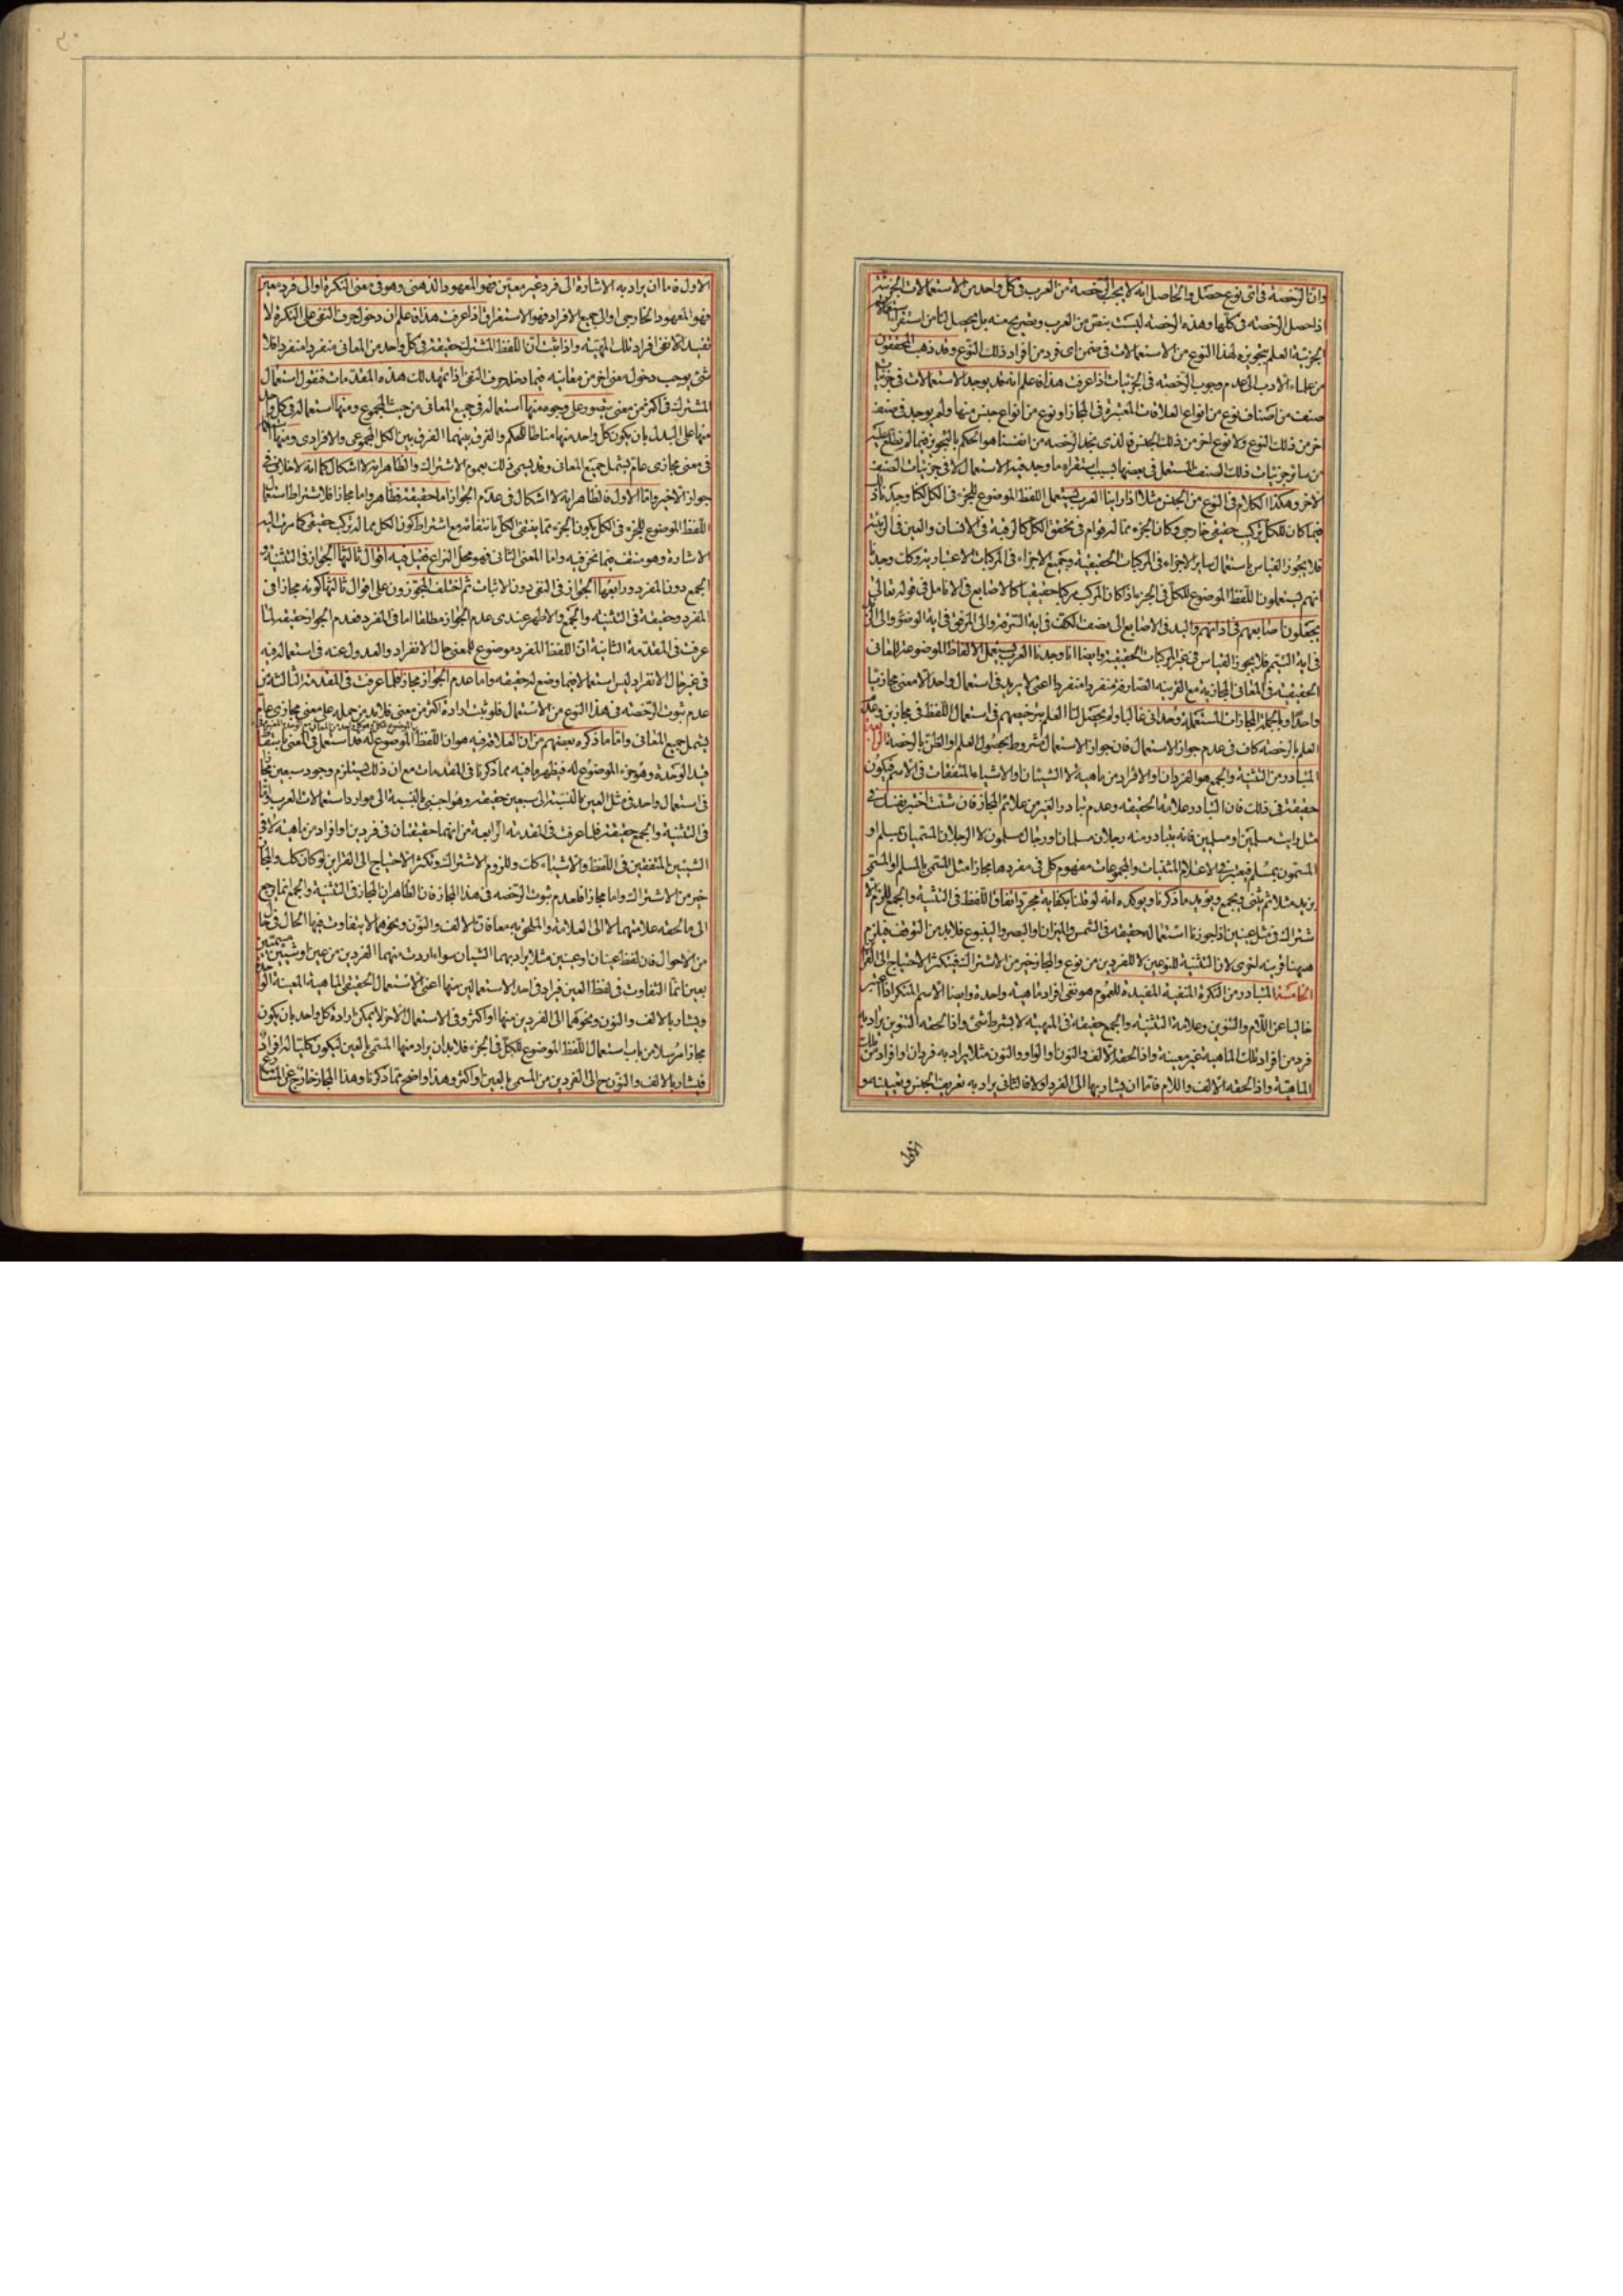 وان الرخصة في اي نوع حصل والحاصل انه لا يجب الرخصة من العرب في كل واحد من الاستعمالات الجزئية
اذا حصل الرخصة في كلها وهذه الرخصة ليست بنص من العرب وتصريح منه بل يحصل لنا من استقراء
الجزئية العلم بتجويزه لهذا النوع من الاستعمالات في ضمن اي فرد من افراد ذلك النوع وقد ذهب المحققون
من علماء الادب الى عدم وجوب الرخصة في الجزئيات اذا عرفت هذا فاعلم انه قد يوجد الاستعمالات في جزئيات
صنف من اصناف نوع من انواع العلاقات المعتبرة في المجاز او نوع من انواع جنس منها ولم يوجد في صنف
اخر من ذلك النوع ولا نوع اخر من ذلك الجنس فالذي نجد الرخصة من انفسنا هو الحكم بالتجويز فيما لم نطلع عليه
من سائر جزئيات ذلك الصنف المستعمل في بعضها بسبب استقراء ما وجد فيه الاستعمال لا في جزئيات الصنف
الاخر وهكذا الكلام في النوع من الجنس مثلا اذا راينا العرب يستعمل اللفظ الموضوع للجزء في الكل لكنا وجدنا ذلك
فيما كان للكل تركب حقيقي خارجي وكان الجزء مما له قوام في تحقق الكل كالرقبة في الانسان والعين في الربيئة
فلا يجوز القياس باستعمال ساير الاجزاء في المركبات الحقيقية وجميع الاجزاء في المركبات الاعتبارية وكك وجدنا
انهم يستعملون اللفظ الموضوع للكل في الجزء اذا كان المركب مركبا حقيقيا كالاصابع في الانامل في قوله تعالى
يجعلون اصابعهم في اذانهم واليد في الاصابع الى نصف الكف في اية السرقة والى المرفق في اية الوضوء والى الزند
في اية التيمم فلا يجوز القياس في غير المركبات الحقيقية وايضا انا وجدنا العرب يستعمل الالفاظ الموضوعة للمعاني
الحقيقية في المعاني المجازية مع القرينة الصارفة منفردا منفردا اعني لا يريد في استعمال واحد الا معنى مجازيا
واحدا وبالجملة المجازات المستعملة وحداني غالبا ولم يحصل لنا العلم بترخيصهم في استعمال اللفظ في مجازين وعدم
العلم بالرخصة كاف في عدم جواز الاستعمال فان جواز الاستعمال مشروط بحصول العلم او الظن بالرخصة الرابعة
المتبادر من التثنية والجمع هو الفردان والافراد من ماهية لا الشيئان والاشياء المتفقات في الاسم فيكون
حقيقة في ذلك فان التبادر علامة الحقيقة وعدم تبادر الغير من علائم المجاز فان شئت اختبر نفسك في
مثل رايت مسلمين او مسلمين فانه يتبادر منه رجلان مسلمان او رجال مسلمون لا الرجلان المسميان بمسلم او
المسمون بمسلم فيعتبر في الاعلام المثنيات والمجموعات مفهوم كلي في مفردها مجازا مثل المسمى بالمسلم او المسمى
بزيد مثلا ثم يثنى ويجمع ويؤيد ما ذكرنا ويؤكده انه لو قلنا بكفاية مجرد اتفاق اللفظ في التثنية والجمع للزم الا
شتراك في مثل عينين اذ لجوزنا استعماله حقيقة في الشمس والميزان والبصر والينبوع فلا بد من التوقف فيلزم
هيهنا قرينة اخرى لان التثنية للنوعين لا للفردين من نوع والمجاز خير من الاشتراك فيكثر الاحتياج الى القرائن
الخامسة المتبادر من النكرة المنفية المفيدة للعموم هو نفي افراد ماهية واحدة وايضا الاسم المنكر اذا اعتبر
خاليا عن اللام والتنوين وعلامة التثنية والجمع حقيقة في المهية لا بشرط شئ واذا لحقه التنوين يراد به
فرد من افراد تلك الماهية غير معينة واذا لحقه الالف والنون او الواو والنون مثلا يراد به فردان او افراد من تلك
الماهية واذا لحقه الالف واللام فاما ان يشار بها الى الفرد او لا فالثاني يراد به تعريف الجنس وتعيينه و
الاول
الاول فاما ان يراد به الاشارة الى فرد غير معين فهو المعهود الذهني وهو في معنى النكرة او الى فرد معين
فهو المعهود الخارجي والى جميع الافراد فهو الاستغراق اذا عرفت هذا فاعلم ان دخول حرف النفي على النكرة لا
تفيد الا نفي افراد تلك المهية واذا ثبت ان اللفظ المشترك حقيقة في كل واحد من المعاني منفردا منفردا فلا
شئ يوجب دخول معنى اخر من معانيه فيما دخله حرف النفي اذا تمهد لك هذه المقدمات فنقول استعمال
المشترك في اكثر من معنى يتصور على وجوه منها استعماله في جميع المعاني من حيث المجموع ومنها استعماله في كل واحد
منها على البدل بان يكون كل واحد منها مناطا للحكم والفرق بينهما الفرق بين الكل المجموعي والافرادي ومنها استعماله
في معنى مجازي عام يشمل جميع المعاني وقد يسمى ذلك بعموم الاشتراك والظاهر انه لا اشكال كما انه لا خلاف في
جواز الاخير واما الاول فالظاهر انه لا اشكال في عدم الجواز اما حقيقة فظاهر واما مجازا فلاشتراط استعمال
اللفظ الموضوع للجزء في الكل بكون الجزء مما ينتفي الكل بانتفائه مع اشتراط كون الكل مما له تركب حقيقي كما مرت اليه
الاشارة وهو منتف فيما نحن فيه واما المعنى الثاني فهو محل النزاع فقيل فيه اقوال ثالثها الجواز في التثنية و
الجمع دون المفرد ورابعها الجواز في النفي دون الاثبات ثم اختلف المجوزون على اقوال ثالثها كونه مجازا في
المفرد وحقيقة في التثنية والجمع والاظهر عندي عدم الجواز مطلقا اما في المفرد فعدم الجواز حقيقة لما
عرفت في المقدمة الثانية ان اللفظ المفرد موضوع للمعنى حال الانفراد والعدول عنه في استعماله فيه
في غير حال الانفراد ليس استعمالا فيما وضع له حقيقة واما عدم الجواز مجازا فلما عرفت في المقدمة الثالثة من
عدم ثبوت الرخصة في هذا النوع من الاستعمال فلو ثبت ارادة اكثر من معنى فلا بد من حمله على معنى مجازي عام
يشمل جميع المعاني واما ما ذكره بعضهم من ان العلاقة فيه هو ان اللفظ الموضوع له قد استعمل في المعنى باسقاط
قيد الوحدة وهو جزء الموضوع له فيظهر ما فيه مما ذكرنا في المقدمات مع ان ذلك يستلزم وجود سبعين مجازا
في استعمال واحد في مثل العين بالنسبة الى سبعين حقيقة وهو اجنبي بالنسبة الى موارد استعمالات العرب واما
في التثنية والجمع حقيقة فلما عرفت في المقدمة الرابعة من انهما حقيقتان في فردين او افراد من ماهية لا في
الشيئين المتفقين في اللفظ والاشياء كك وللزوم الاشتراك وتكثر الاحتياج الى القراين لو كان كك والمجاز
خير من الاشتراك واما مجازا فلعدم ثبوت الرخصة في هذا المجاز فان الظاهر ان المجاز في التثنية والجمع انما يرجع
الى ما لحقه علامتهما لا الى العلامة والملحق به معا فان الالف والنون ونحوهما لا يتفاوت فيها الحال في حال
من الاحوال فان لفظ عينان او عينين مثلا يراد بهما الشيئان سواء اردت منهما الفردين من عين او شيئين مسميين
بعين انما التفاوت في لفظ العين فيراد في احد الاستعمالين منها اعني الاستعمال الحقيقي الماهية المعينة الواحدة
ويشار بالالف والنون ونحوهما الى الفردين منها او اكثر وفي الاستعمال الاخر لا يمكن ارادة كل واحد بان يكون
مجازا مرسلا من باب استعمال اللفظ الموضوع للكل في الجزء فلا بد ان يراد منها المسمى بالعين ليكون كليا له افراد
فيشار بالالف والنون ح الى الفردين من المسمى بالعين او اكثر وهذا واضح مما ذكرنا وهذا المجاز خارج عن المتنازع